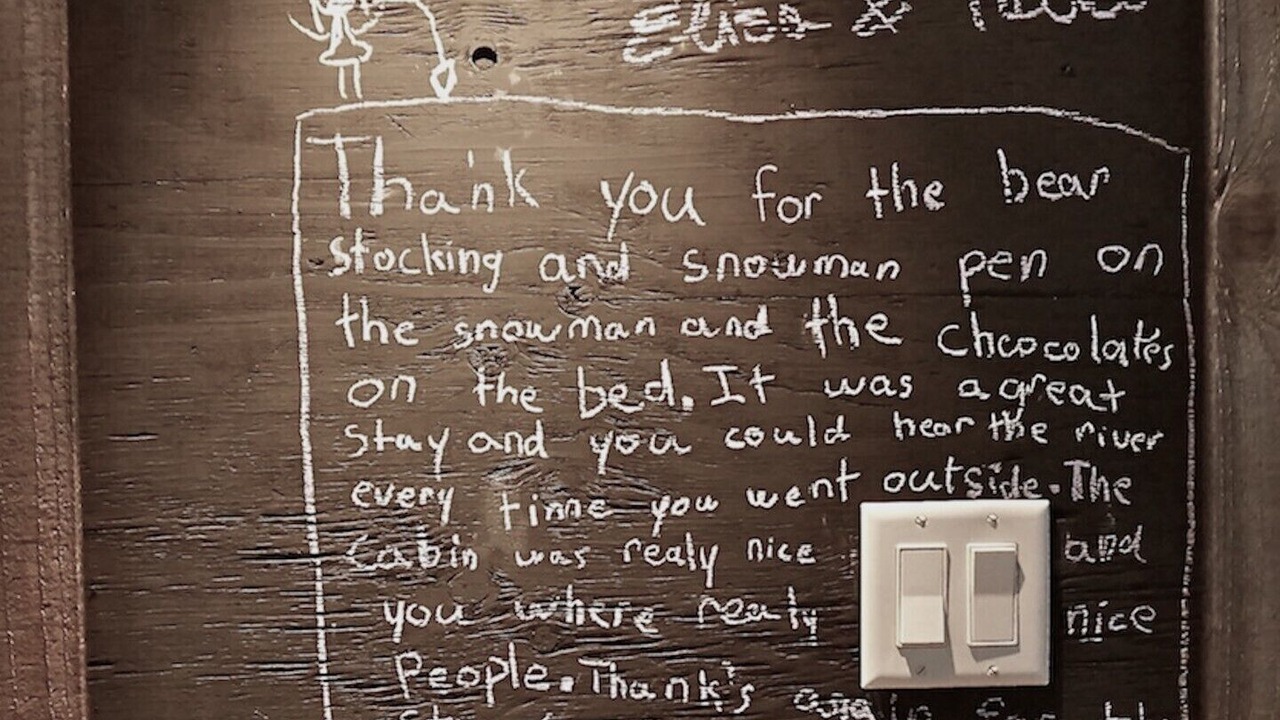 &
Thank you for the bear
stocking and snowman pen on
the snowman and the chcocolates
on the bed. It was a great
stay and you could hear the river
every time you went outside. The
Cabin was realy nice and
you where realy nice
People. Thank's again for